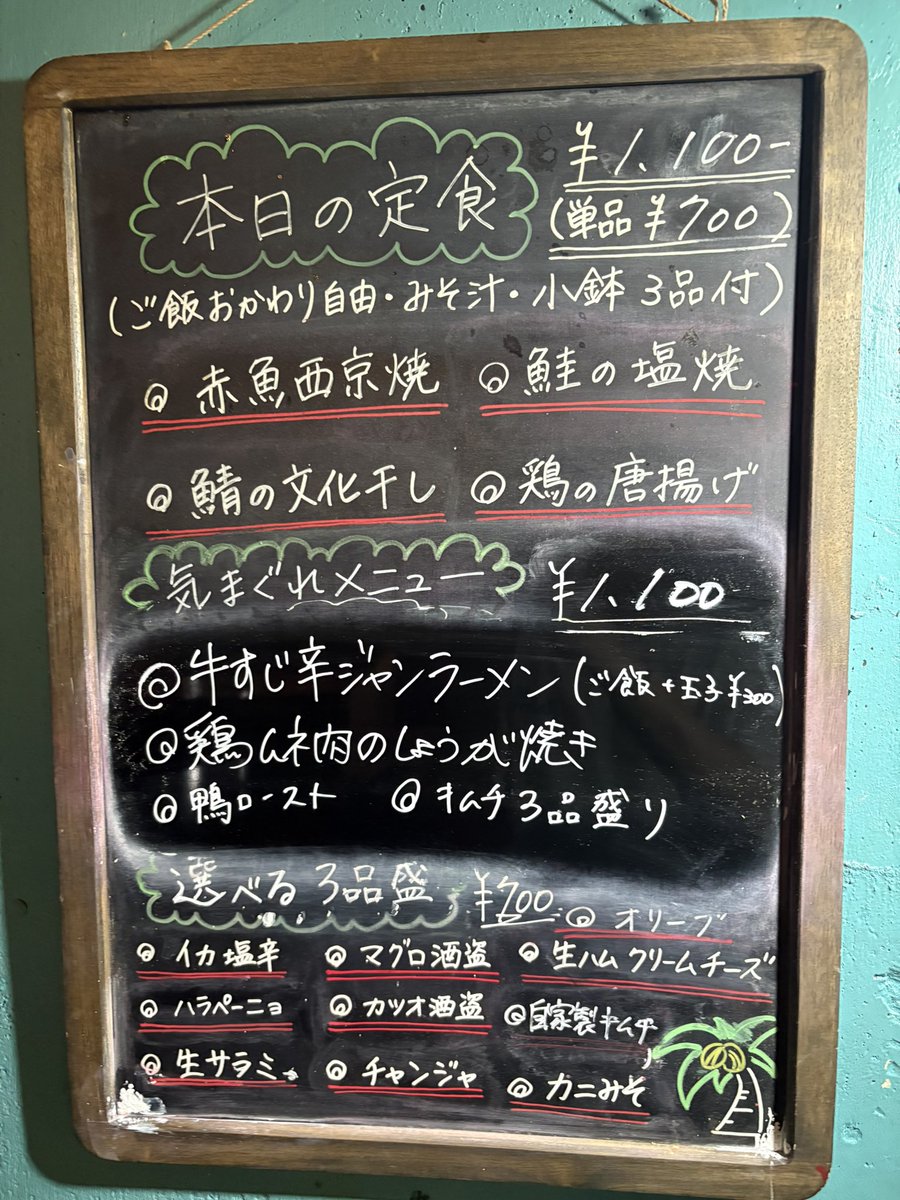 本日の定食 ¥1,100-
(単品¥700)
(ご飯おかわり自由・みそ汁・小鉢3品付)
◎赤魚西京焼 ◎鮭の塩焼
◎鯖の文化干し ◎鶏の唐揚げ
気まぐれメニュー ¥1,100
◎牛すじ辛ジャンラーメン(ご飯+玉子¥300)
◎鶏ムネ肉のしょうが焼き
◎鴨ロースト ◎キムチ3品盛り
選べる3品盛 ¥700
◎オリーブ
◎イカ塩辛 ◎マグロ酒盗 ◎生ハムクリームチーズ
◎ハラペーニョ ◎カツオ酒盗 ◎自家製キムチ
◎生サラミ ◎チャンジャ ◎カニみそ